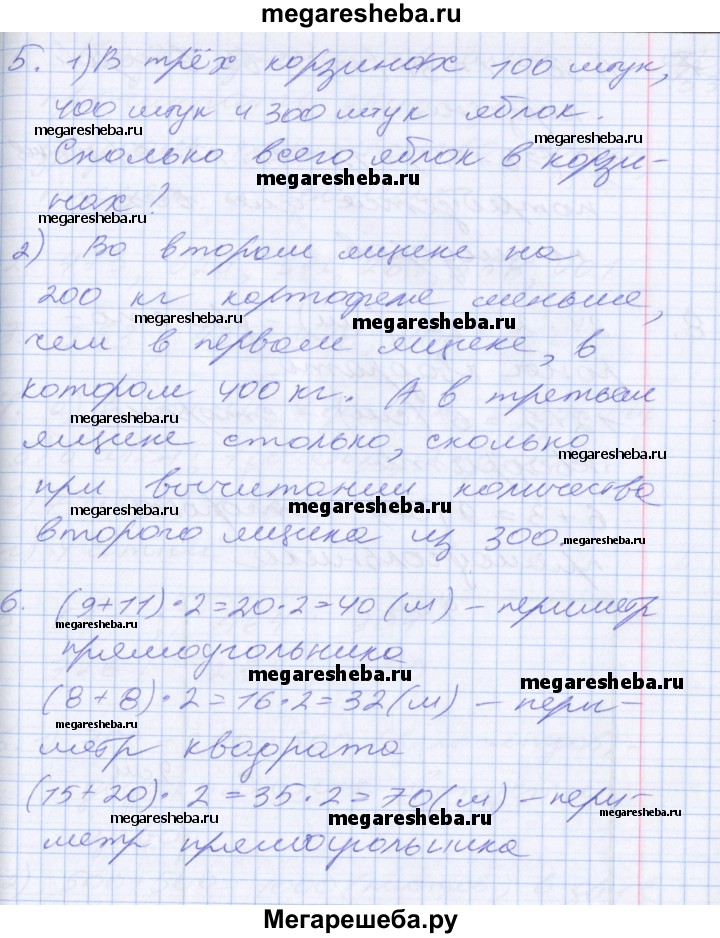 megaresheba.ru
5. 1) В трёх корзинах 100 штук,
400 штук и 300 штук яблок.
megaresheba.ru megaresheba.ru
Сколько всего яблок в корзи-
megaresheba.ru
нах?
megaresheba.ru
2) Во втором ящике на
200 кг картофеля меньше,
megaresheba.ru megaresheba.ru
чем в первом ящике, в
котором 400 кг. А в третьем
megaresheba.ru
ящике столько, сколько
megaresheba.ru
при вычитании количества
megaresheba.ru megaresheba.ru
второго ящика из 300.
megaresheba.ru
6. (9+11)·2=20·2=40(м) – периметр
megaresheba.ru megaresheba.ru
прямоугольника
megaresheba.ru megaresheba.ru
(8+8)·2=16·2=32(м) – пери-
megaresheba.ru
метр квадрата
(15+20)·2=35·2=70(м) – пери-
megaresheba.ru megaresheba.ru megaresheba.ru
метр прямоугольника
megaresheba.ru megaresheba.ru
Мегарешеба.ру